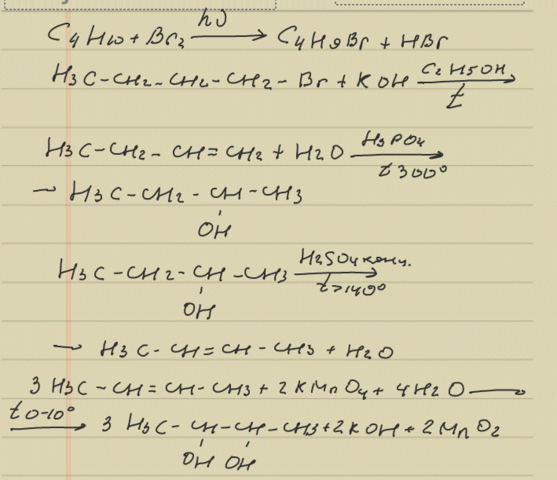 C4H10 + Br2 hν → C4H9Br + HBr
H3C-CH2-CH2-CH2-Br + KOH C2H5OH →
t
H3C-CH2-CH=CH2 + H2O H3PO4 →
t 300°
→ H3C-CH2-CH-CH3
OH
H3C-CH2-CH-CH3 H2SO4 конц. →
OH t>140°
→ H3C-CH=CH-CH3 + H2O
3 H3C-CH=CH-CH3 + 2 KMnO4 + 4H2O —
t 0-10° → 3 H3C-CH-CH-CH3 + 2KOH + 2MnO2
OH OH